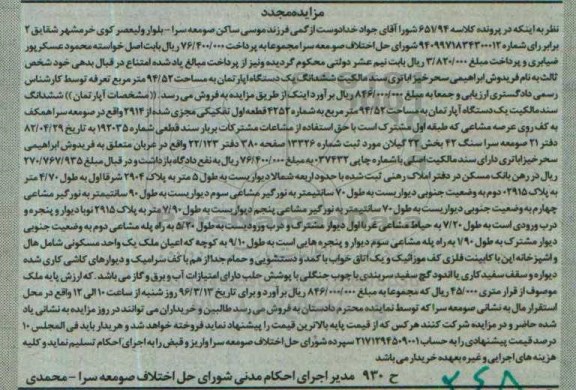 مزایده مجدد
نظر به اینکه در پرونده کلاسه ۶۵۷/۹۴ شورا آقای جواد خدادوست ازگمی فرزند موسی ساکن صومعه سرا - بلوار ولیعصر کوی خرمشهر شقایق ۲
برابر رای شماره ۹۴۰۹۹۷۱۸۴۳۴۰۰۰۱۲ شورای حل اختلاف صومعه سرا مجموعا به پرداخت ۷۶/۴۰۰/۰۰۰ ریال بابت اصل خواسته محمود عسکرپور
ضیابری و پرداخت مبلغ ۳/۸۲۰/۰۰۰ ریال بابت نیم عشر دولتی محکوم گردیده و نیز از پرداخت مبالغ یاد شده امتناع در قبال بدهی خود شخص
ثالث به نام فریدوش ابراهیمی سحرخیز اباتری سند مالکیت ششدانگ یک دستگاه آپارتمان به مساحت ۹۴/۵۲ متر مربع تعرفه توسط کارشناس
رسمی دادگستری ارزیابی و جمعا به مبلغ ۸۴۶/۰۰۰/۰۰۰ ریال برآورد اینک از طریق مزایده به فروش می رسد. ((مشخصات آپارتمان)) ششدانگ
سند مالکیت یک دستگاه آپارتمان به مساحت ۹۴/۵۲ متر مربع به شماره ۴۲۵۲ قطعه اول تفکیکی مجزی شده از ۲۹۱۴ واقع در صومعه سرا همکف
به کف روی عرصه مشاعی که طبقه اول مشترک است با حق استفاده از مشاعات مشترکات بربار سند قطعی شماره ۱۹۲۰۳۵ به تاریخ ۸۲/۰۴/۲۹
دفتر ۲۱ صومعه سرا سنگ ۴۲ بخش ۲۲ گیلان مورد ثبت شماره ۱۳۳۴۶ صفحه ۳۸۰ دفتر ۲۲/۱۲۳ واقع در غربان متعلق به فریدوش ابراهیمی
سحرخیز اباتری دارای سند مالکیت اصلی با شماره چاپی ۰۳۷۴۳۲ به مبلغ ۷۶/۴۰۰/۰۰۰ ریال به نفع دادگاه بازداشت و در قبال مبلغ ۲۷۰/۷۶۷/۹۳۵
ریال در رهن بانک مسکن در دفتر املاک رهنی ثبت شده با حدود اربعه شمالا دیواریست به طول ۵ متر به پلاک ۲۹۰۴ شرقا اول ۴/۷۰ متر
به پلاک ۲۹۱۵ دوم به وضعیت جنوبی دیواریست به طول ۷۰ سانتیمتر به نورگیر مشاعی سوم دیواریست به طول ۹۰ سانتیمتر به نورگیر مشاعی
چهارم به وضعیت جنوبی دیواریست به طول ۷۰ سانتیمتر به نورگیر مشاعی پنجم دیواریست به طول ۷/۹۰ متر به پلاک ۲۹۱۵ نوبا دیوار و پنجره و
درب ورودی است به طول ۷/۲۰ به حیاط مشاعی غربا اول دیوار مشترک و درب ورودیست به طول ۵/۳۰ به راه پله مشاعی دوم به وضعیت جنوبی
دیوار مشترک به طول ۱/۹۰ به راه پله مشاعی سوم دیوار و پنجره هایی است به طول ۹/۱۰ به کوچه که اعیان ملک یک واحد مسکونی شامل هال
و آشپزخانه اپن با کابینت فلزی کف موزائیک و یک اتاق خواب با کمد و دستشویی و حمام جدا از هم با کف سرامیک و دیوارهای کاشی کاری شده
دیواره و سقف سفید کاری با اندود گچ سفید سربندی با چوب جنگلی با پوشش حلب دارای امتیازات آب و برق و گاز می باشد. که ارزش پایه ملک
موصوف از قرار متری ۴۵/۰۰۰ ریال که مجموعا به مبلغ ۸۴۶/۰۰۰/۰۰۰ ریال برآورد و برای تاریخ ۹۶/۳/۱۳ روز شنبه از ساعت ۱۰ الی ۱۲ واقع در محل
استقرار مال به نشانی صومعه سرا که توسط نماینده محترم دادستان به فروش می رسد طالبین و خریداران می توانند در روز مزایده به نشانی یاد
شده حاضر و در مزایده شرکت کنند هرکس که از قیمت پایه بالاترین قیمت را پیشنهاد نماید فروخته خواهد شد و خریدار باید فی المجلس ۱۰
درصد قیمت پیشنهادی را به حساب ۲۱۷۱۲۹۴۵۰۹۰۰۱ سپرده شورای حل اختلاف صومعه سرا واریز و قبض را به اجرای احکام تسلیم نماید و کلیه
هزینه های اجرایی و غیره بعهده خریدار می باشد
ح ۹۳۰ مدیر اجرای احکام مدنی شورای حل اختلاف صومعه سرا - محمدی